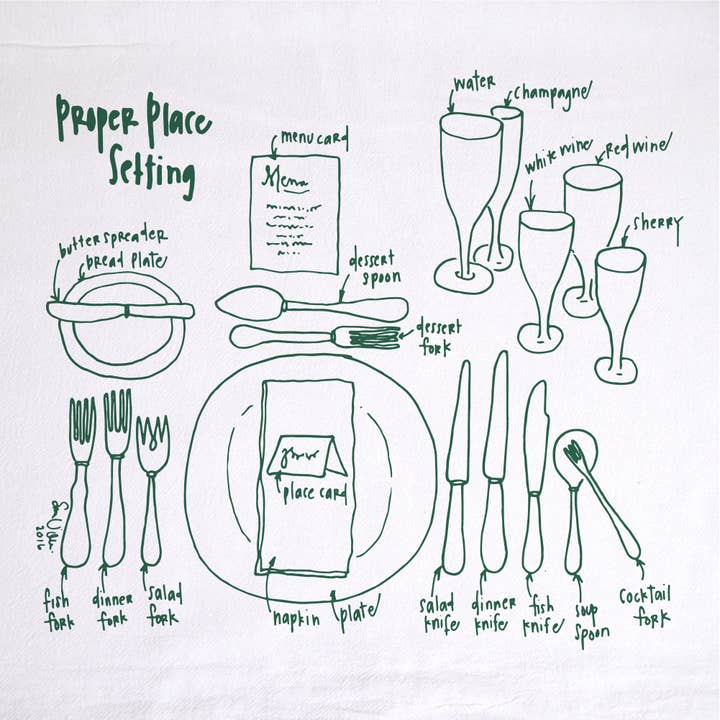 Proper Place
Setting
menu card
Menu
water
champagne
white wine
Red wine
sherry
butter spreader
bread plate
dessert
spoon
dessert
fork
place card
2016
fish
fork
dinner
fork
salad
fork
napkin
plate
salad
knife
dinner
knife
fish
knife
soup
spoon
cocktail
fork